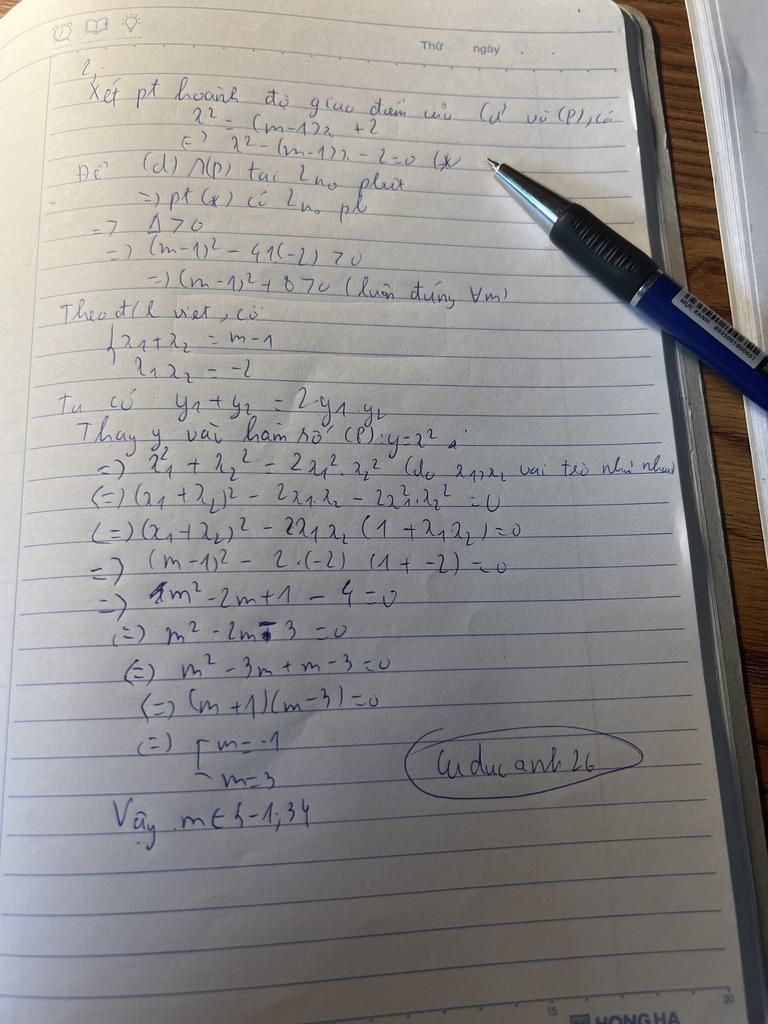 Thứ ngày . .
2,
Xét pt hoành độ giao điểm của (d và (P), có
x² = (m-1)x + 2
(=) x² - (m-1)x - 2 = 0 (*
Để (d) ∩(P) tại 2 no phbt
=) pt (*) có 2 no pb
=> Δ > 0
=) (m-1)² - 4.1(-2) > 0
=) (m-1)² + 8 > 0 (luôn đúng ∀m)
Theo đ/l viet, có
{ x1 + x2 = m-1
x1 x2 = -2
Ta có : y1 + y2 = 2.y1.y2
Thay y vào hàm số (P): y = x²
=) x1² + x2² = 2x1².x2² (do x1,x2 vai trò như nhau)
(=) (x1 + x2)² - 2x1.x2 - 2x1².x2² = 0
(=) (x1 + x2)² - 2x1x2 (1 + x1x2) = 0
=) (m-1)² - 2.(-2) (1 + -2) = 0
=) m² - 2m + 1 - 4 = 0
(=) m² - 2m - 3 = 0
(=) m² - 3m + m - 3 = 0
(=) (m + 1)(m - 3) = 0
(=) [ m = -1
m = 3
Cuducanh26
Vậy m ∈ {-1; 3}
MỰC XANH
8935001800651
15
20
HONG HA